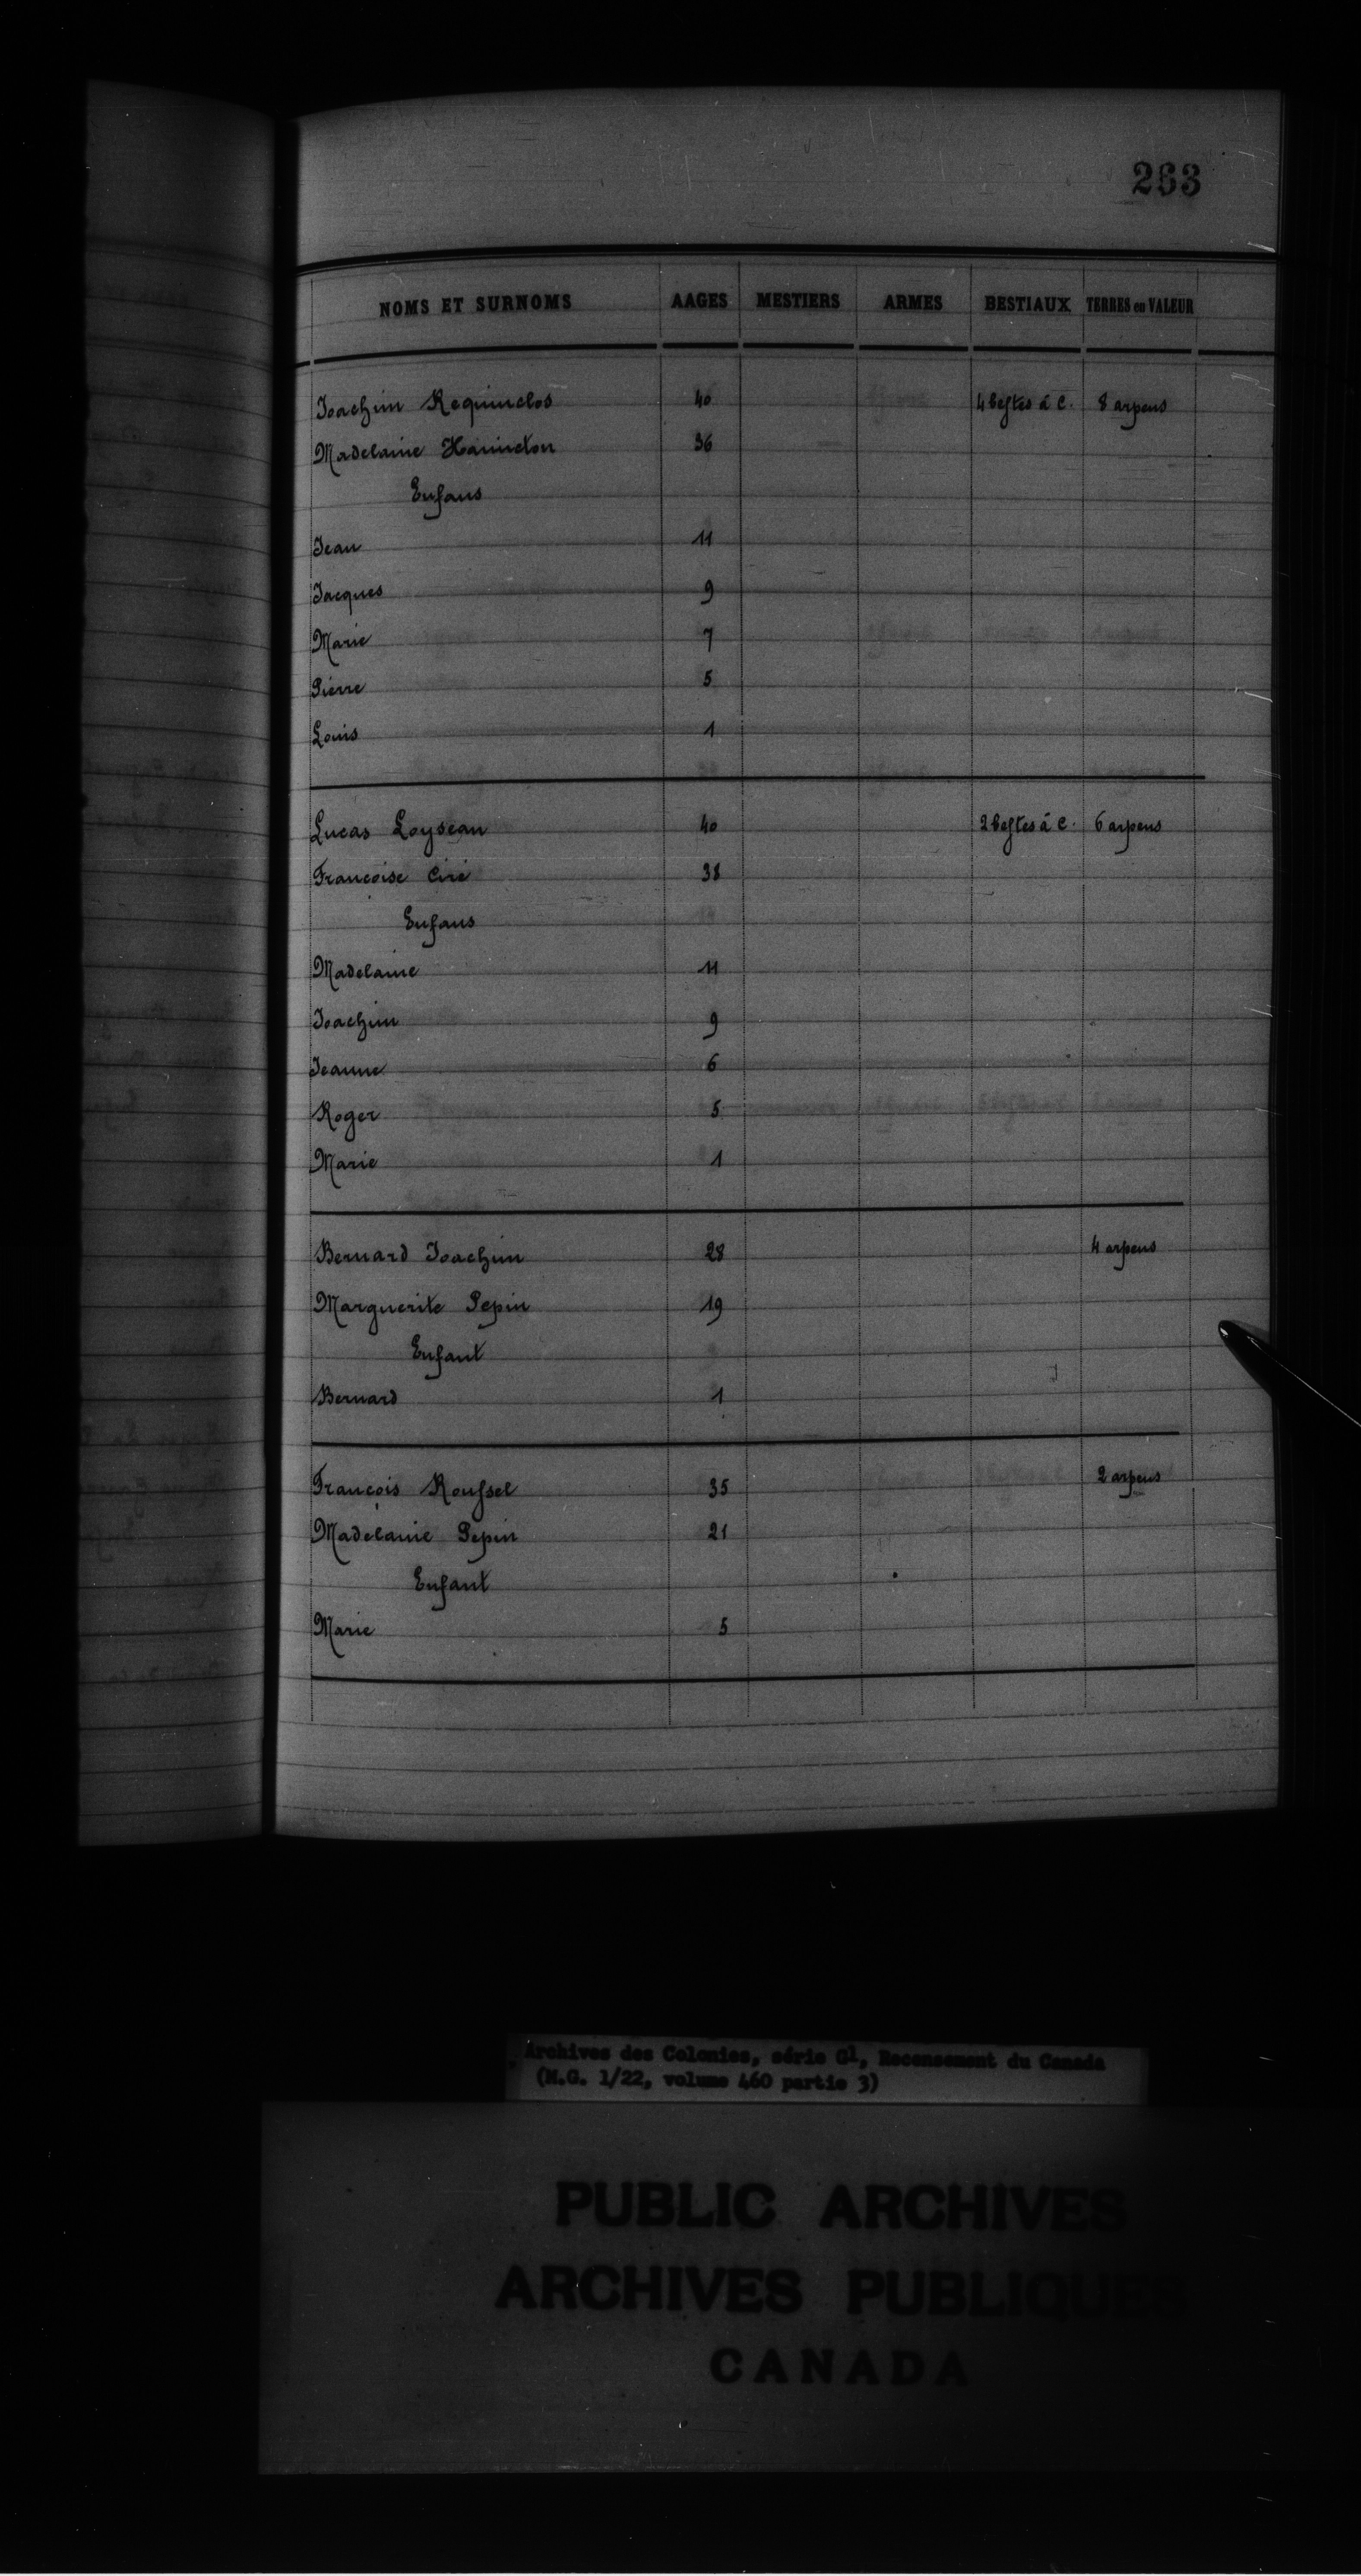 263
NOMS ET SURNOMS AAGES MESTIERS ARMES BESTIAUX TERRES en VALEUR
Joachim Requinclos 40 4 bestes à c. 8 arpens
Madelaine Haincton 36
Enfans
Jean 11
Jacques 9
Marie 7
Pierre 5
Louis 1
Lucas Loyseau 40 2 bestes à c. 6 arpens
Francoise Ciré 38
Enfans
Madelaine 11
Joachim 9
Jeanne 6
Roger 5
Marie 1
Bernard Joachim 28 4 arpens
Marguerite Pepin 19
Enfant
Bernard 1
François Roussel 35 2 arpens
Madelaine Pepin 21
Enfant
Marie 5
Archives des Colonies, série G1, Recensement du Canada
(M.G. 1/22, volume 460 partie 3)
PUBLIC ARCHIVES
ARCHIVES PUBLIQUES
CANADA